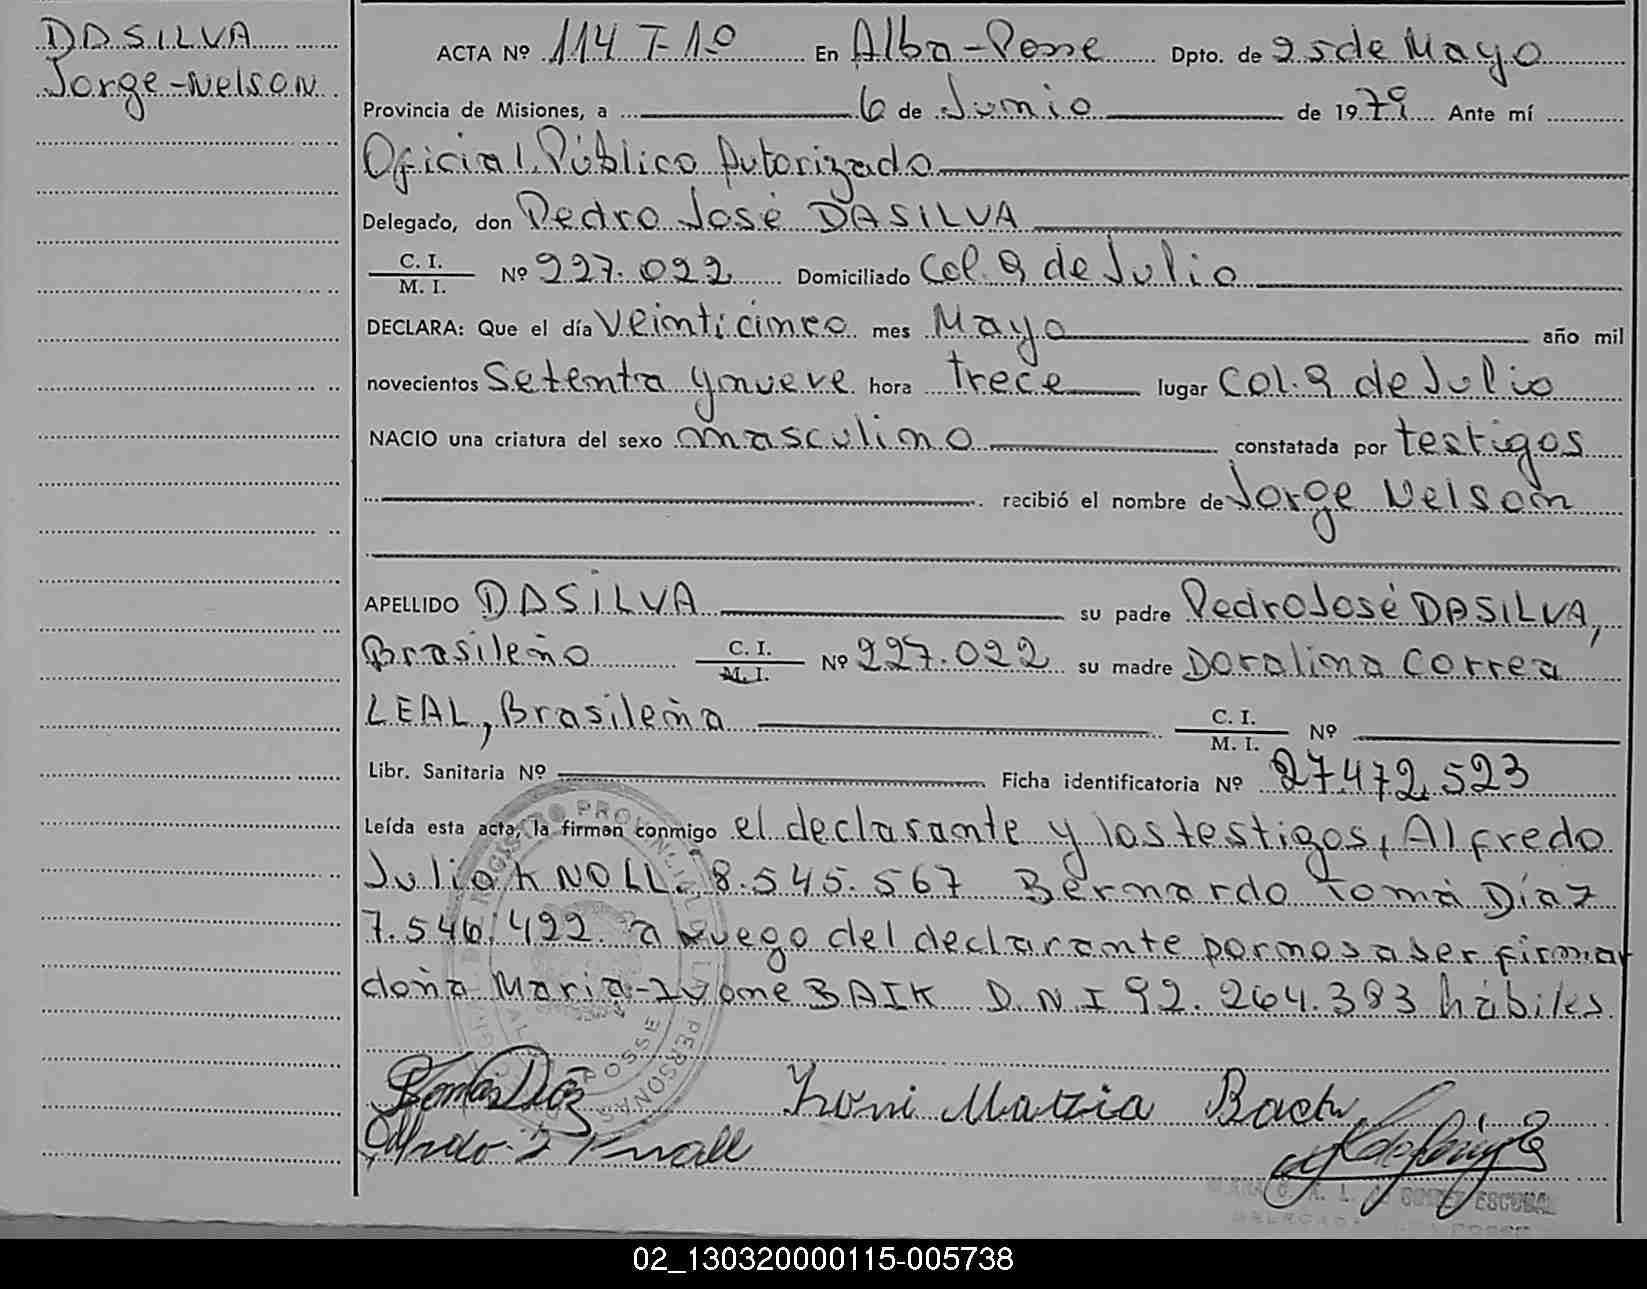 DASILVA
Jorge-Nelson
ACTA Nº 114 T-1º En Alba-Posse Dpto. de 25 de Mayo
Provincia de Misiones, a 6 de Junio de 1979 Ante mí
Oficial Público Autorizado
Delegado, don Pedro José DASILVA
C. I. / M. I. Nº 227.022 Domiciliado Col. 9 de Julio
DECLARA: Que el día Veinticinco mes Mayo año mil
novecientos Setenta y nueve hora trece lugar Col. 9 de Julio
NACIO una criatura del sexo masculino constatada por testigos
recibió el nombre de Jorge Nelson
APELLIDO DASILVA su padre Pedro José DASILVA,
Brasileño C. I. / M. I. Nº 227.022 su madre Doralina Correa
LEAL, Brasileña C. I. / M. I. Nº
Libr. Sanitaria Nº Ficha identificatoria Nº 27.472.523
Leída esta acta, la firman conmigo el declarante y los testigos, Alfredo
Julio KNOLL. 8.545.567 Bernardo Tomá Díaz
7.546.492. a ruego del declarante por no saber firmar
doña Maria-Ivone BAIK D.N.I 92.264.383 hábiles.
REGISTRO PROVINCIAL DE LAS PERSONAS
POSSE
Tomás Díaz Ivoni Marzia Bach
Alfredo J Knoll
GOMEZ ESCOBAL
02_130320000115-005738